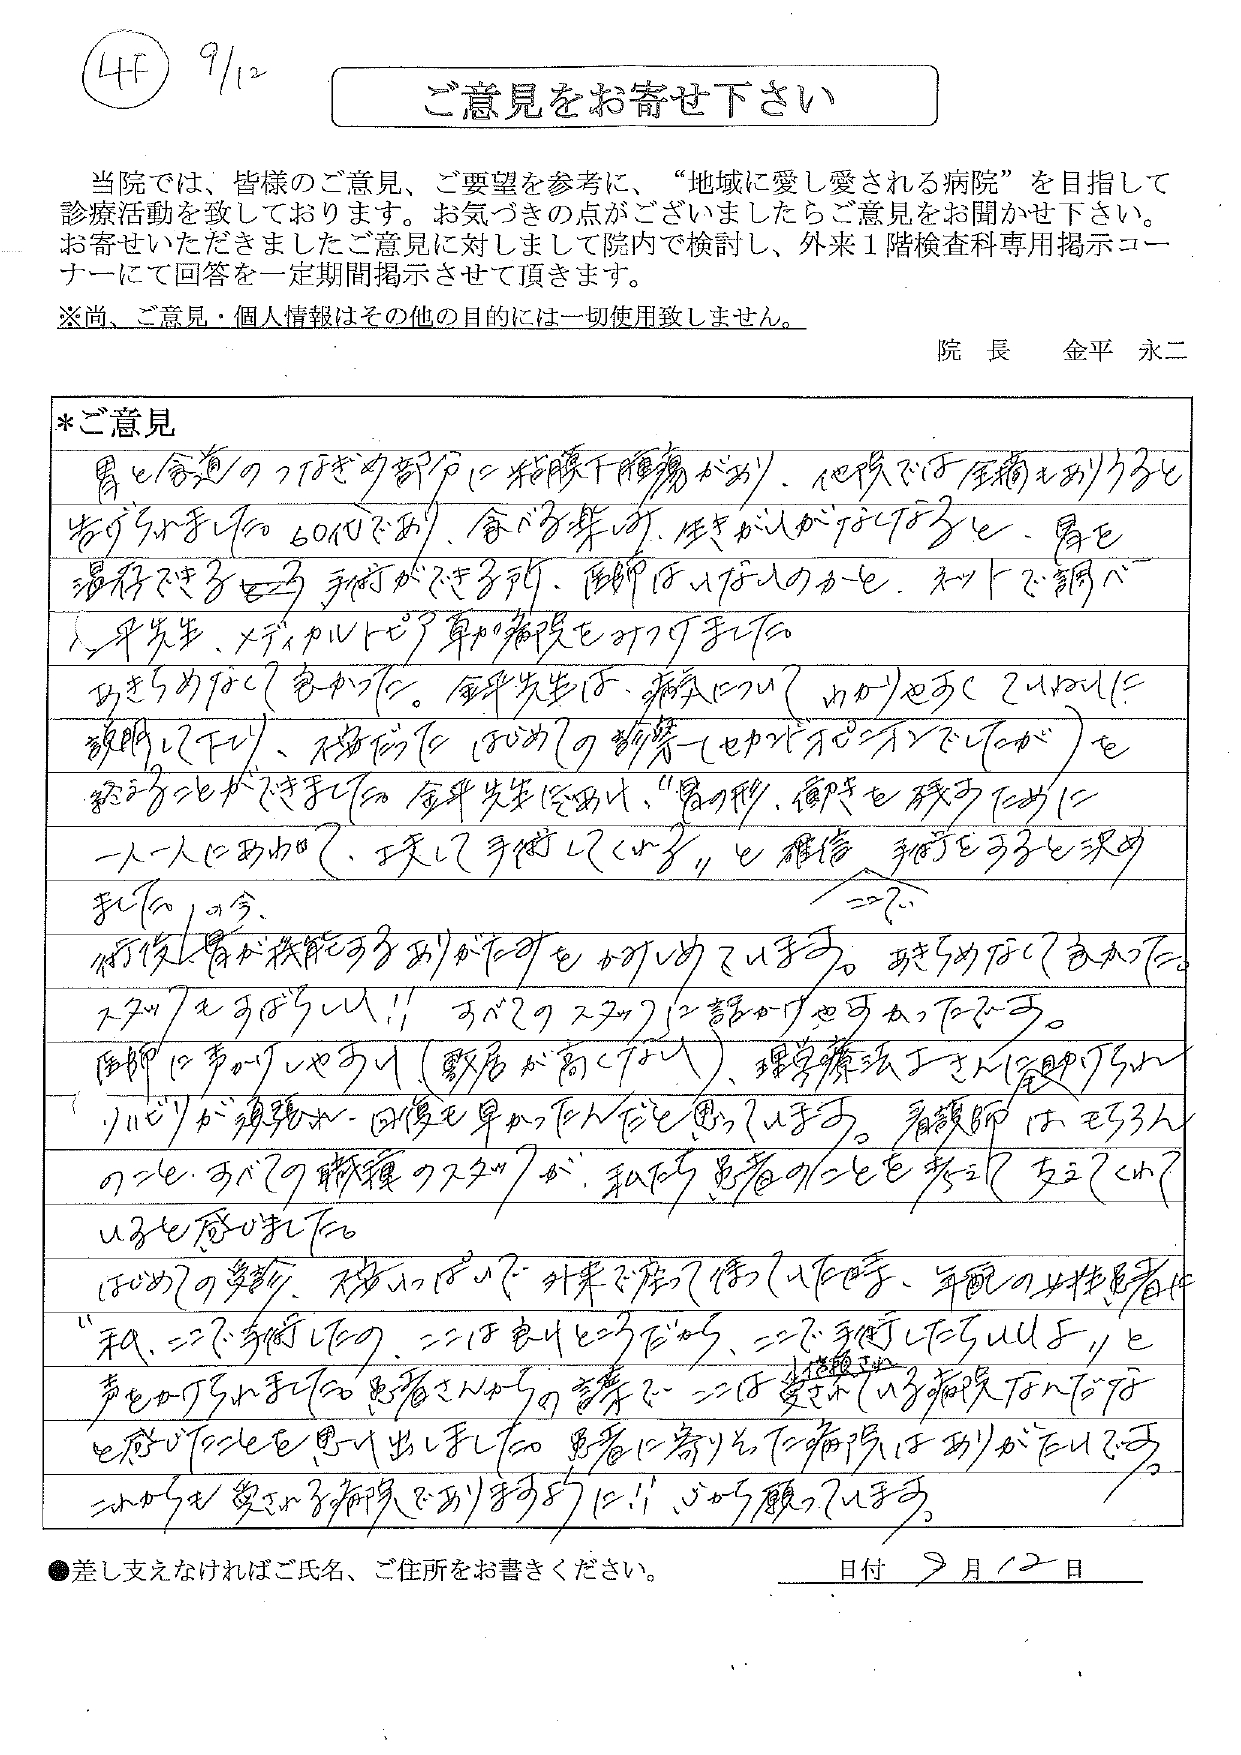 4F 9/12
ご意見をお寄せ下さい
当院では、皆様のご意見、ご要望を参考に、“地域に愛し愛される病院”を目指して
診療活動を致しております。お気づきの点がございましたらご意見をお聞かせ下さい。
お寄せいただきましたご意見に対しまして院内で検討し、外来1階検査科専用掲示コー
ナーにて回答を一定期間掲示させて頂きます。
※尚、ご意見・個人情報はその他の目的には一切使用致しません。
院　長　　金平　永二
*ご意見
胃と食道のつなぎめ部分に粘膜下腫瘍があり、他院では全摘もありうると
告げられました。60代であり、食べる楽しみ、生きがいがなくなると、胃を
温存できる 手術ができる所、医師はいないのかと、ネットで調べ
平先生、メディカルトピア草加病院をみつけました。
あきらめなくて良かった。金平先生は、病気について わかりやすく ていねいに
説明して下さり、不安だった はじめての診察(セカンドオピニオンでしたが)を
終えることができました。金平先生であれば、“胃の形、働きを残すために
一人一人にあわせて、工夫して手術してくれる„と確信 ここで 手術をすると決め
ました。
術後の今、胃が機能するありがたみをかみしめています。あきらめなくて良かった。
スタッフもすばらしい!! すべてのスタッフに話かけやすかったです。
医師に声かけしやすい(敷居が高くない)、理学療法士さんに助けられ
リハビリが頑張れ、回復も早かったんだと思っています。看護師はもちろん
のこと、すべての職種のスタッフが、私たち患者のことを考えて支えてくれて
いると感じました。
はじめての受診、不安いっぱいで外来で座って待っていた時、年配の女性患者に
“私、ここで手術したの、ここは良いところだから、ここで手術したらいいよ„と
声をかけられました。患者さんからの言葉で ここは 信頼され 愛されている病院なんだな
と感じたことを思い出しました。患者に寄りそった病院はありがたいです。
これからも愛される病院でありますように!! 心から願っています。
●差し支えなければご氏名、ご住所をお書きください。 日付 9月12日